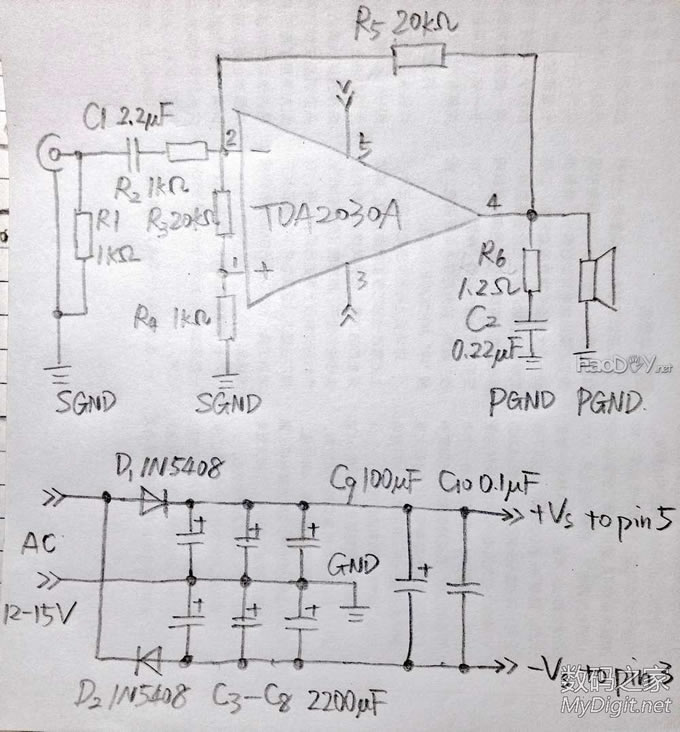 R5 20kΩ
C1 2.2μF
V
2
−
5
R2 1kΩ
R1
1kΩ
R3 20kΩ
TDA2030A
4
1
+
3
R6
1.2Ω
R4 1kΩ
C2
0.22μF
SGND
SGND
PGND
PGND.
HaoDIY.net
D1 1N5408
C9 100μF
C10 0.1μF
+Vs to pin 5
AC
GND
12-15V
-Vs to pin 3
D2 1N5408
C3-C8 2200μF
数码之家
MyDigit.net